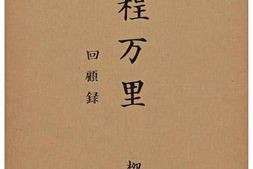 程万里
回顧録